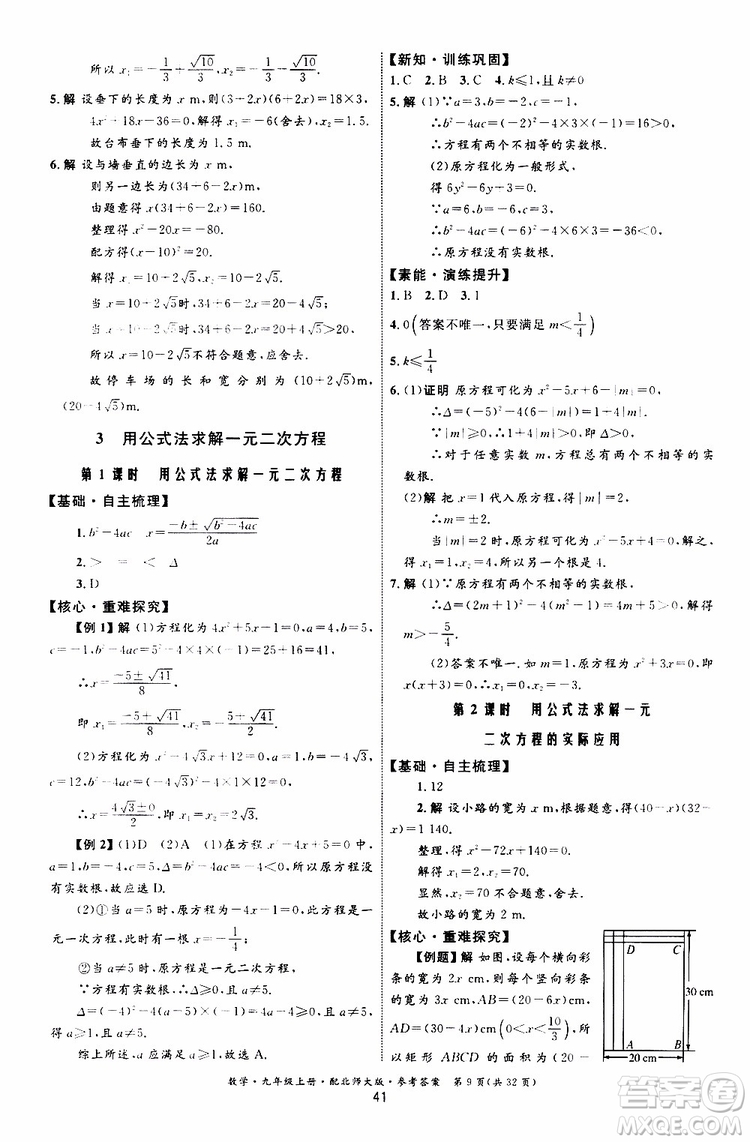 所以 x₁=3+√10/2, x₂=3-√10/2.
5.解 设垂下的长度为 x m,则(3+2x)(6+2x)=18×3,
4x²+18x-36=0,解得 x₁=-6(舍去),x₂=1.5.
故台布垂下的长度为 1.5 m.
6.解 设与墙垂直的边长为 x m,
则另一边长为(34+6-2x)m,
由题意得 x(34+6-2x)=160.
整理得 x²-20x=-80.
配方得(x-10)²=20.
解得 x=10±2√5.
当 x=10+2√5时,34+6-2x=20-4√5;
当 x=10-2√5时,34+6-2x=20+4√5,
所以 x=10-2√5不符合题意,应舍去.
故停车场的长和宽分别为(10+2√5)m,
(20-4√5)m.
3 用公式法求解一元二次方程
第1课时 用公式法求解一元二次方程
【基础·自主梳理】
1.b²-4ac x=(-b±√(b²-4ac))/2a
2.> = < Δ
3.D
【核心·重难探究】
【例1】解 (1)方程化为 4x²+5x-1=0.
∵a=4,b=5,c=-1,
∴b²-4ac=5²-4×4×(-1)=25+16=41,
∴x=(-5±√41)/8,
即 x₁=(-5+√41)/8,x₂=(-5-√41)/8.
(2)方程化为 4x²-4√3x+3=0.
∵a=4,b=-4√3,c=3,∴b²-4ac=(-4√3)²-4×
c=12,
∴x=(4√3±0)/8,即 x₁=x₂=√3/2.
【例2】(1)D (2)A (1)在方程 x²-4x+5=0中,
∵Δ=(-4)²-4×1×5=-4<0,所以原方程没
有实数根.故应选 D.
(2)①当 a=5时,原方程变为-4x-1=0,此时一
元一次方程的实数根为 x=-1/4;
②当 a≠5时,原方程为一元二次方程.
∵方程有实数根,
∴Δ≥0,∴16+4(a-5)≥0,解得 a≥1.
即 a≥1,且 a≠5.
综上所述,a≥1.故应选 A.
【新知·训练巩固】
1.C 2.B 3.C 4.k≤1,且k≠0
5.解 (1)∵a=3,b=4,c=-1,
∴b²-4ac=4²-4×3×(-1)=28>0,
∴方程有两个不相等的实数根.
(2)方程化为一般形式,
得 6y²-6y+3=0.
∵a=6,b=-6,c=3,
∴b²-4ac=(-6)²-4×6×3=-36<0,
∴原方程没有实数根.
【素能·演练提升】
1.B 2.D 3.1
4.0(答案不唯一,只要满足 m<1/4)
5.k≤1/4
6.(1)证明 原方程可化为 x²-5x+6-|m|=0,
∴Δ=(-5)²-4(6-|m|)=1+4|m|.
∵|m|≥0,∴1+4|m|>0.
∴对于任意实数 m,方程总有两个不相等的实
数根.
(2)解 把 x=1代入原方程,得|m|=2,
∴m=±2.
当|m|=2时,原方程可化为 x²-5x+4=0,解之,
得 x₁=1,x₂=4.即方程的另一个根是 4.
7.解 (1)∵原方程有两个不相等的实数根,
∴Δ=(2m+1)²-4(m²-1)=4m+5>0,解得
m>-5/4.
(2)答案不唯一.如 m=1,此时原方程为 x²+
3x=0,即x(x+3)=0,解得 x₁=0,x₂=-3.
第2课时 用公式法求解一元
二次方程的实际应用
【基础·自主梳理】
1.12
2.解 设小路的宽为 x m,根据题意,得(40-x)(32-
x)=1 140.
整理,得 x²-72x+140=0.
解得 x₁=2,x₂=70.
显然,x=70 不合题意,舍去.
故小路的宽为 2 m.
【核心·重难探究】
【例题】解 如图,设每个横向彩
条的宽为 2x cm,则每个竖向彩条的
宽度为3x cm,AB=(20-6x)cm,
AD=(30-4x)cm(0<x<10/3),所
以矩形 ABCD 的面积为(20-
D C
A B
30 cm
20 cm
数学·九年级上册·配北师大版·参考答案 第9页(共32页)
41